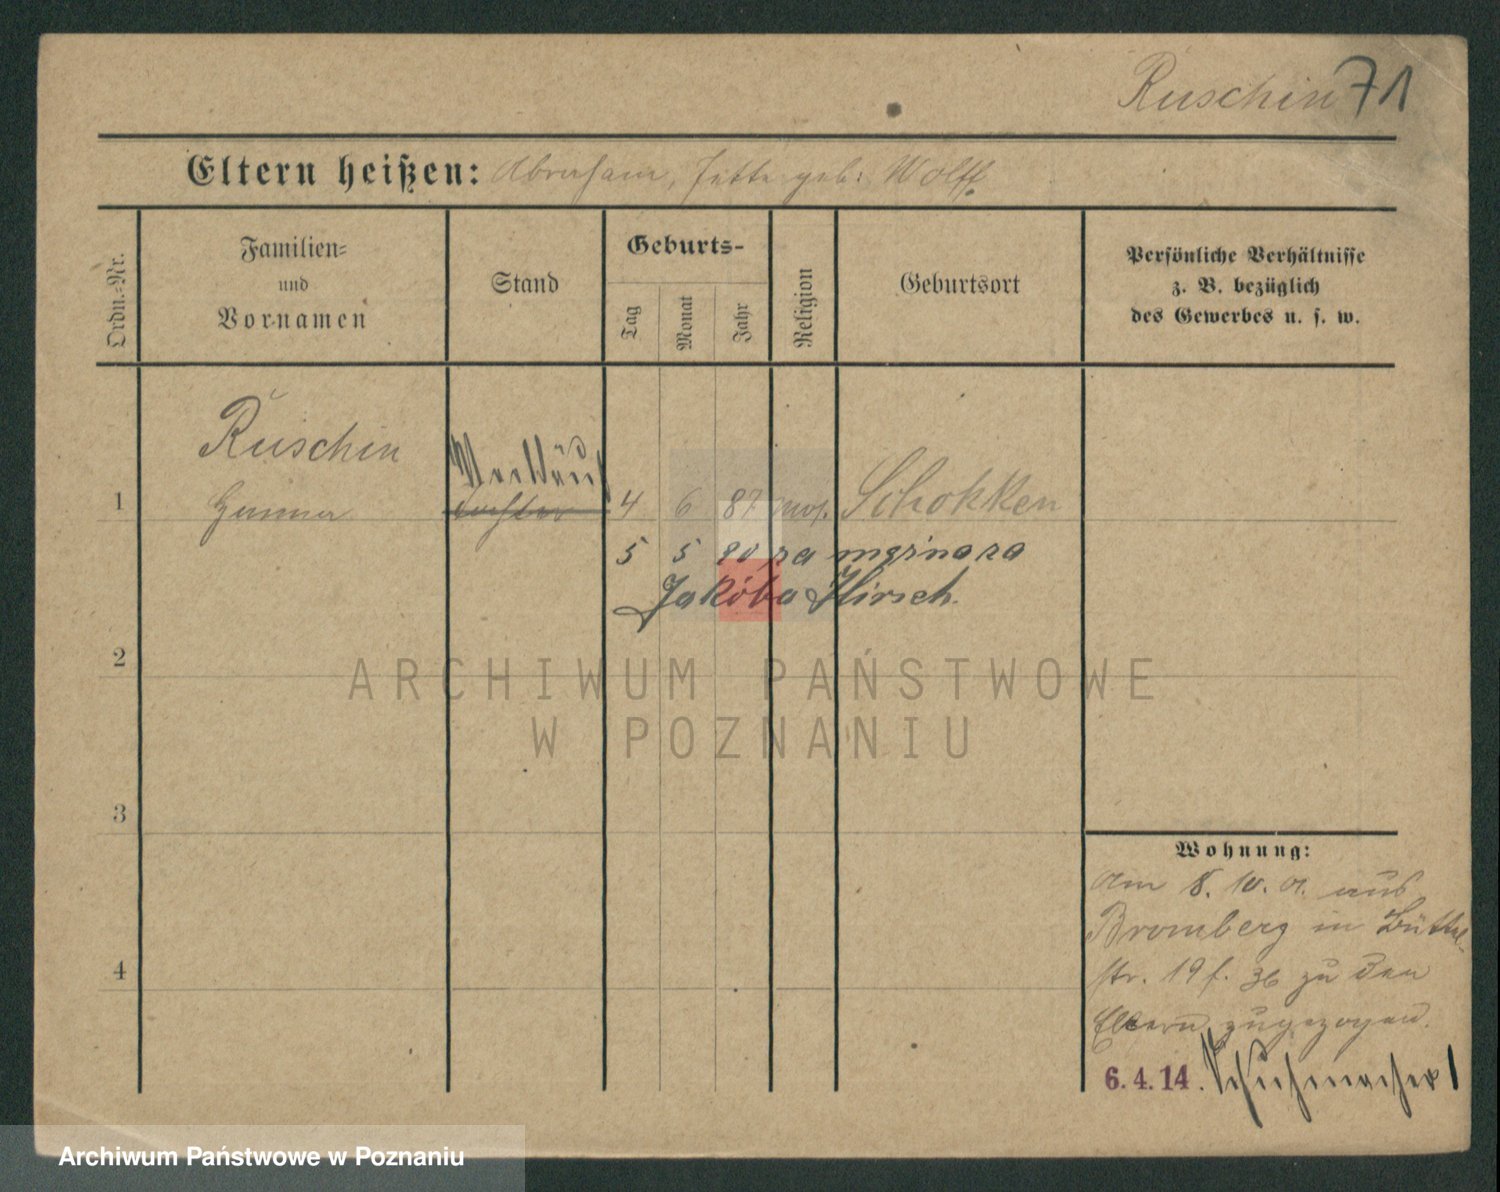 Ruschin 71
Eltern heißen: Abraham, Jette geb. Wolff.
Ordn.-Nr.
Familien-
und
Vornamen
Stand
Geburts-
Tag
Monat
Jahr
Religion
Geburtsort
Persönliche Verhältnisse
z. B. bezüglich
des Gewerbes u. s. w.
Ruschin
1 4 6 87 mos. Schokken
5 5 za
Jakóba Hirsch.
2
3
4
Wohnung:
Am 8. 10. 01. aus
Bromberg in Büttel-
str. 19 zu den
Eltern zugezogen.
6.4.14. Schuhmacher 1
ARCHIWUM PAŃSTWOWE
W POZNANIU
Archiwum Państwowe w Poznaniu